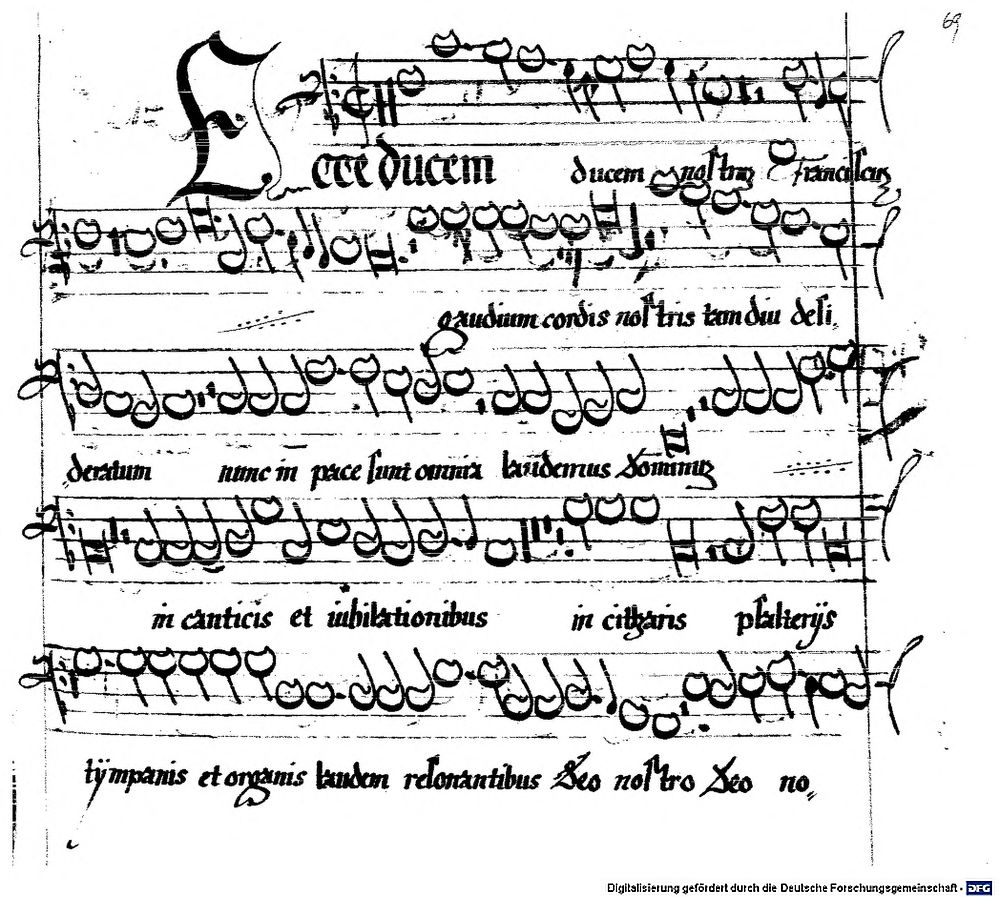 69
Ecce ducem ducem nostrum Franciscus
gaudium cordis nostris tam diu desi
deratum nunc in pace sunt omnia laudemus Dominum
in canticis et iubilationibus in citharis psalterijs
tÿmpanis et organis laudem resonantibus Deo nostro Deo no„
Digitalisierung gefördert durch die Deutsche Forschungsgemeinschaft - DFG